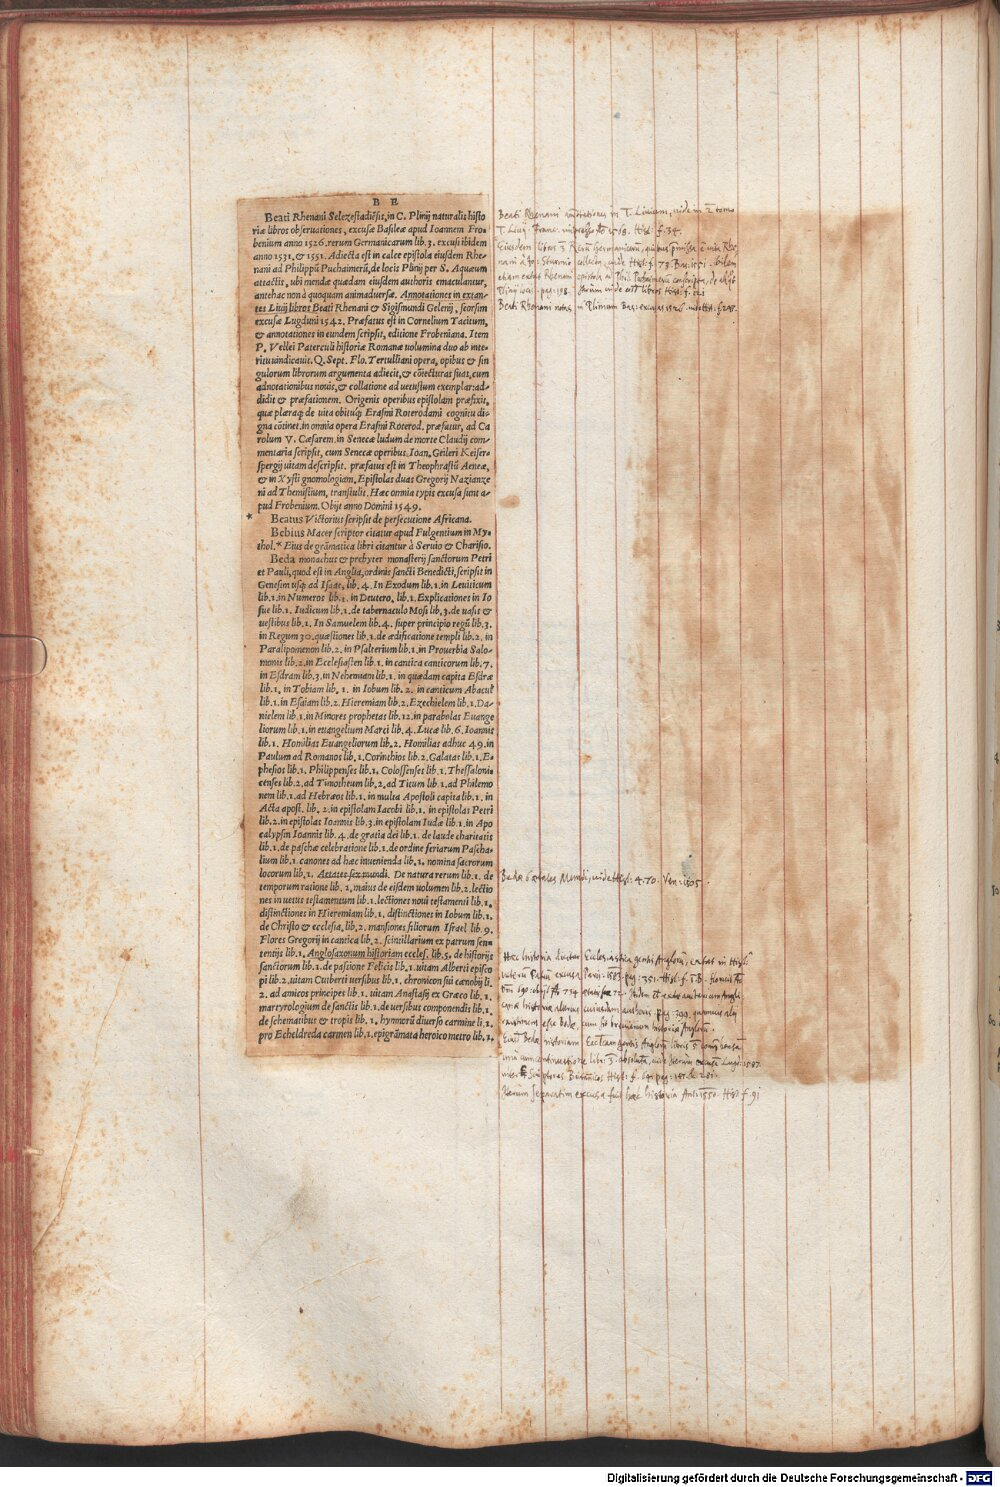 B E
Beati Rhenani Selezestadiẽsis, in C. Plinij naturalis histo
riæ libros obseruationes, excusæ Basileæ apud Ioannem Fro-
benium anno 1526. rerum Germanicarum lib. 3. excusi ibidem
anno 1531, & 1551. Adiecta est in calce epistola eiusdem Rhe-
nani ad Philippũ Puchaimerũ, de locis Plinij per S. Aquæum
attactis, ubi mendæ quædam eiusdem authoris emaculantur,
antehac non à quoquam animaduersæ. Annotationes in extan-
tes Liuij libros Beati Rhenani & Sigismundi Gelenij, seorsim
excusæ Lugduni 1542. Præfatus est in Cornelium Tacitum,
& annotationes in eundem scripsit, editione Frobeniana. Item
P. Vellei Paterculi historiæ Romanæ uolumina duo ab inte-
ritu uindicauit. Q. Sept. Flo. Tertulliani opera, opibus & sin
gulorum librorum argumenta adiecit, & cõiecturas suas, cum
adnotationibus nouis, & collatione ad uetustum exemplar: ad-
didit & præfationem. Origenis operibus epistolam præfixit,
quæ pleraq; de uita obituq; Erasmi Roterodami cognitu di-
gna cõtinet. in omnia opera Erasmi Roterod. præfatur, ad Ca
rolum V. Cæsarem. in Senecæ ludum de morte Claudij com-
mentaria scripsit, cum Senecæ operibus. Ioan. Geileri Keisers-
spergij uitam descripsit. præfatus est in Theophrastũ Aeneæ,
& in Xysti gnomologiam. Epistolas duas Gregorij Nazianze
ni ad Themistium, transtulit. Hæc omnia typis excusa sunt a-
pud Frobenium. Obijt anno Domini 1549.
* Beatus Victorius scripsit de persecutione Africana.
Bebius Macer scriptor citatur apud Fulgentium in My-
thol.* Eius de grãmatica libri citantur à Seruio & Charisio.
Beda monachus & presbyter monasterij sanctorum Petri
et Pauli, quod est in Anglia, ordinis sancti Benedicti, scripsit in
Genesim usq; ad Isaac, lib. 4. In Exodum lib. 1. in Leuiticum
lib. 1. in Numeros lib. 1. in Deutero. lib. 1. Explicationes in Io
sue lib. 1. Iudicum lib. 1. de tabernaculo Mosi lib. 3. de uasis &
uestibus lib. 1. In Samuelem lib. 4. super principio regũ lib. 3.
in Regum 30. quæstiones lib. 1. de ædificatione templi lib. 2. in
Paralipomenon lib. 2. in Psalterium lib. 1. in Prouerbia Salo-
monis lib. 2. in Ecclesiasten lib. 1. in cantica canticorum lib. 7.
in Esdram lib. 3. in Nehemiam lib. 1. in quædam capita Esdræ
lib. 1. in Tobiam lib. 1. in Iobum lib. 2. in canticum Abacuk
lib. 1. in Esaiam lib. 2. Hieremiam lib. 2. Ezechielem lib. 1. Da-
nielem lib. 1. in Minores prophetas lib. 12. in parabolas Euange
liorum lib. 1. in euangelium Marci lib. 4. Lucæ lib. 6. Ioannis
lib. 1. Homilias Euangeliorum lib. 2. Homilias adhuc 49. in
Paulum ad Romanos lib. 1. Corinthios lib. 2. Galatas lib. 1. E-
phesios lib. 1. Philippenses lib. 1. Colossenses lib. 1. Thessaloni-
censes lib. 2. ad Timotheum lib. 2. ad Titum lib. 1. ad Philemo
nem lib. 1. ad Hebræos lib. 1. in multa Apostoli capita lib. 1. in
Acta apost. lib. 2. in epistolam Iacobi lib. 1. in epistolas Petri
lib. 2. in epistolas Ioannis lib. 3. in epistolam Iudæ lib. 1. in Apo
calypsin Ioannis lib. 4. de gratia dei lib. 1. de laude charitatis
lib. 1. de paschæ celebratione lib. 1. de ordine feriarum Pascha-
lium lib. 1. canones ad hæc inuenienda lib. 1. nomina sacrorum
locorum lib. 1. Aetates sex mundi. De natura rerum lib. 1. de
temporum ratione lib. 2. maius de eisdem uolumen lib. 2. lectio
nes in uetus testamentum lib. 1. lectiones noui testamenti lib. 1.
distinctiones in Hieremiam lib. 1. distinctiones in Iobum lib. 1.
de Christo & ecclesia, lib. 2. mansiones filiorum Israel lib. 9.
Flores Gregorij in cantica lib. 2. scintillarium ex patrum sen-
tentijs lib. 1. Anglosaxonum historiam eccles. lib. 5. de historijs
sanctorum lib. 1. de passione Felicis lib. 1. uitam Alberti episco
pi lib. 2. uitam Cutberti uersibus lib. 1. chronicon sui cænobij li.
2. ad amicos principes lib. 1. uitam Anastasij ex Græco lib. 1.
martyrologium de sanctis lib. 1. de uersibus componendis lib. 1.
de schematibus & tropis lib. 1. hymnorũ diuerso carmine li. 1.
pro Echeldreda carmen lib. 1. epigrãmata heroico metro lib. 1.
Beati Rhenani annotationes in T. Liuium, uide in 2 tomo
T. Liuij Franc. impresso Aō 1568. Hist: f. 34.
Eiusdem libros 3 Rerũ Germanicarum,
Beati Rhenani notas in Plinium Bas: excusas 1526. uide Hist. f. 298.
Bedæ 6 ætates Mundi, uide Hist: 4. 70. Ven: 1505.
Hæc historia
Iterum separatim excusa fuit hæc historia Ant: 1550. Hist f. 91
Digitalisierung gefördert durch die Deutsche Forschungsgemeinschaft - DFG